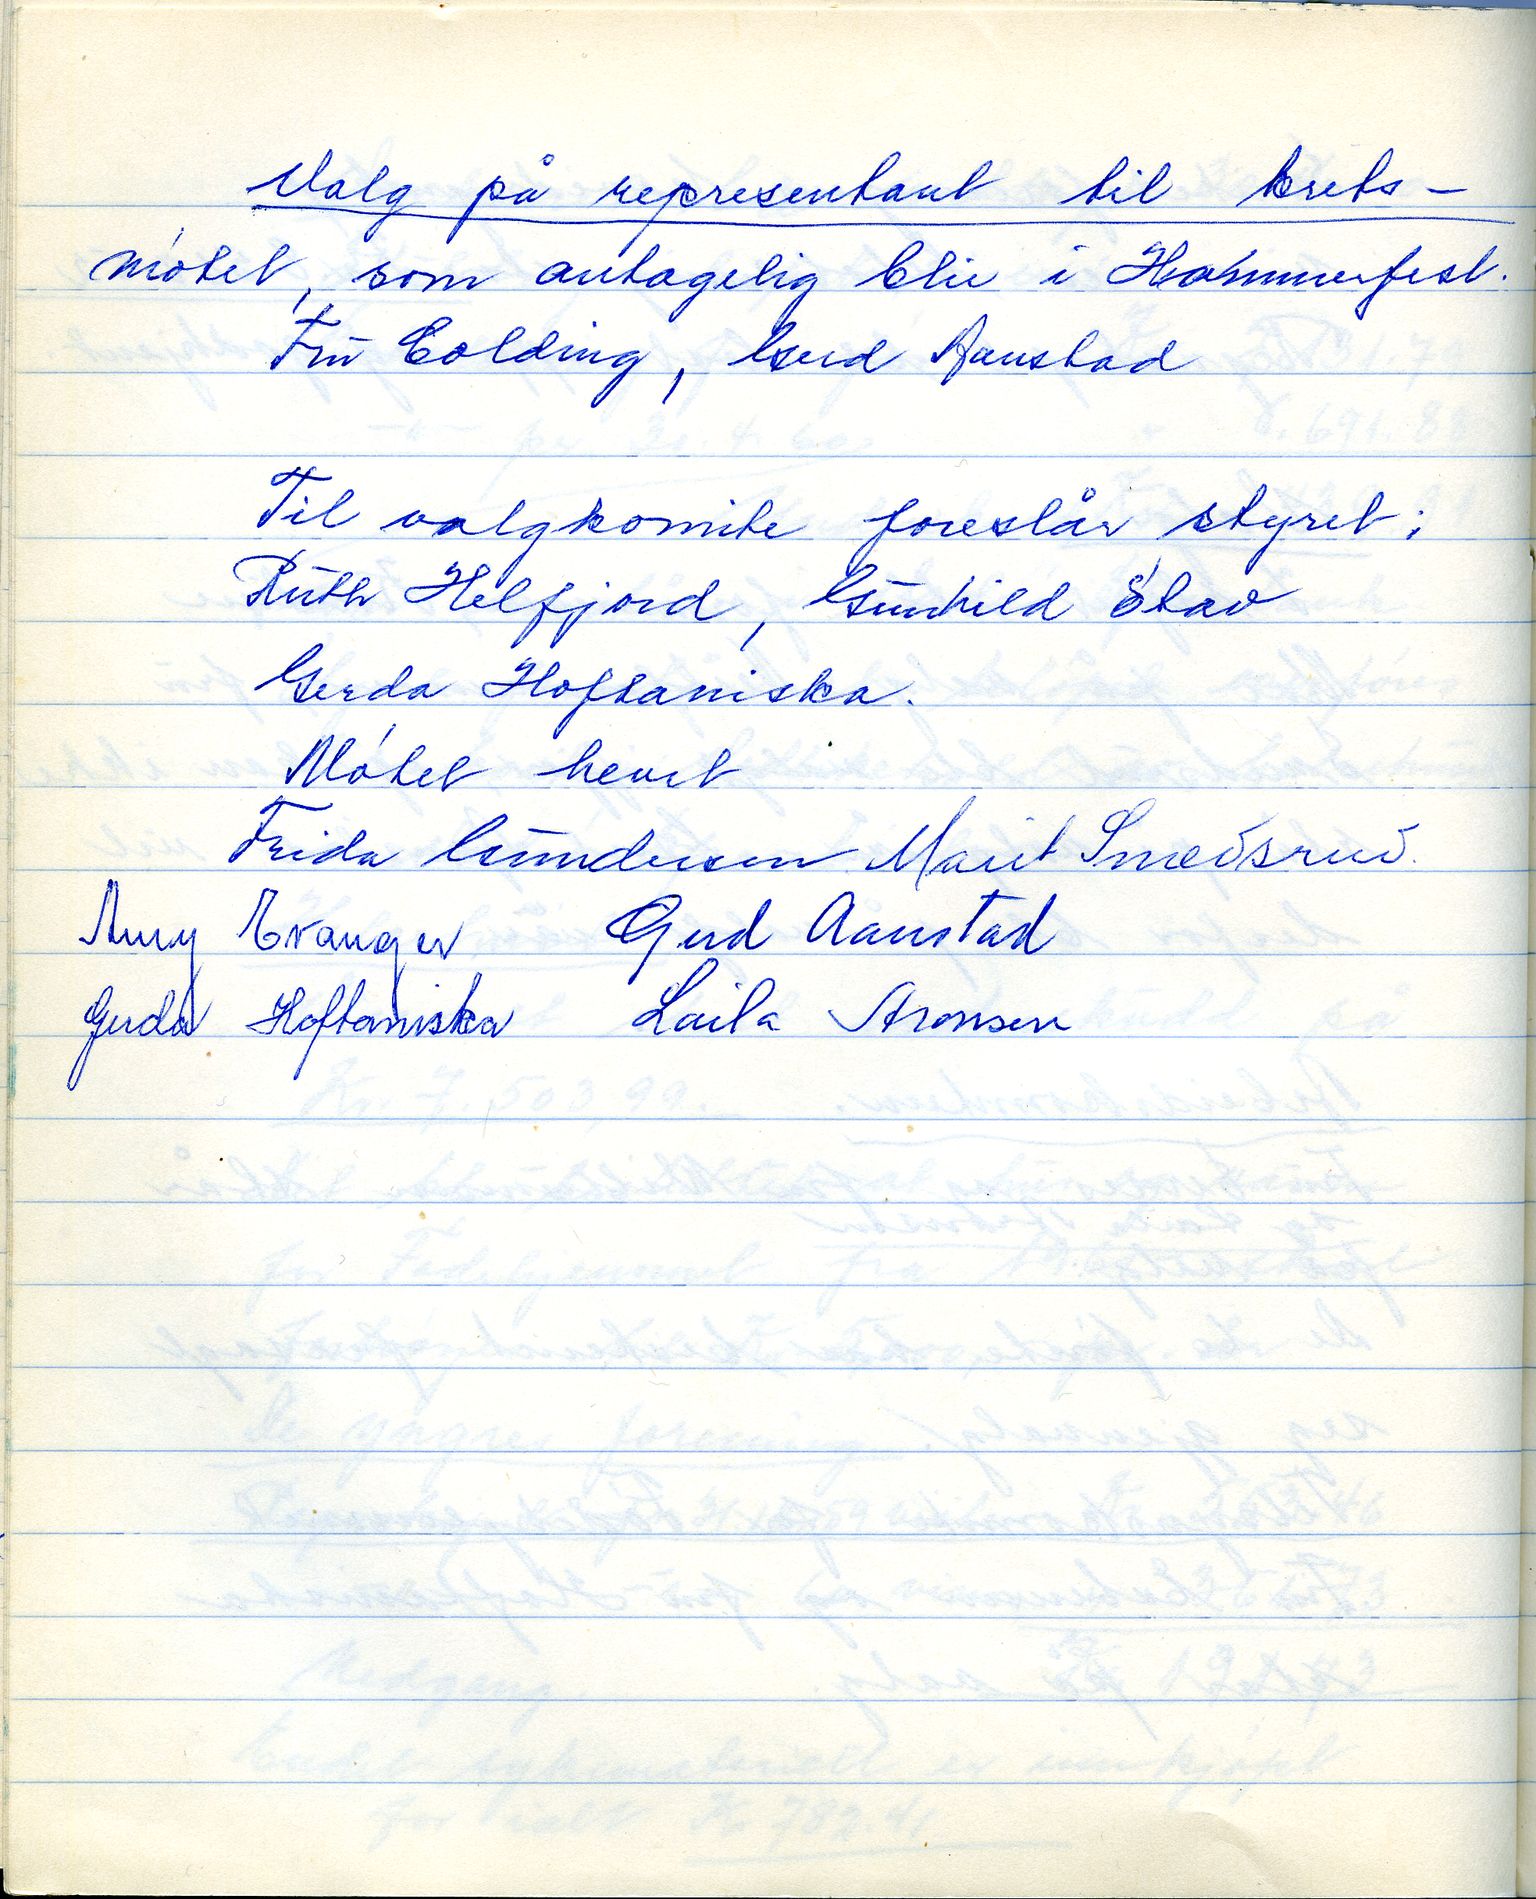 Valg på representant til krets-
møtet, som antagelig blir i Hammerfest.
Frü Colding, Gerd Aanstad
Til valgkomite foreslår styret:
Rüth Helfjord, Günhild Stav
Gerda Hoftaniska.
Møtet hevet
Frida Gündersen Marit Smedsrud.
Amy Evanger Gerd Aanstad
Gerda Hoftaniska Laila Aronsen